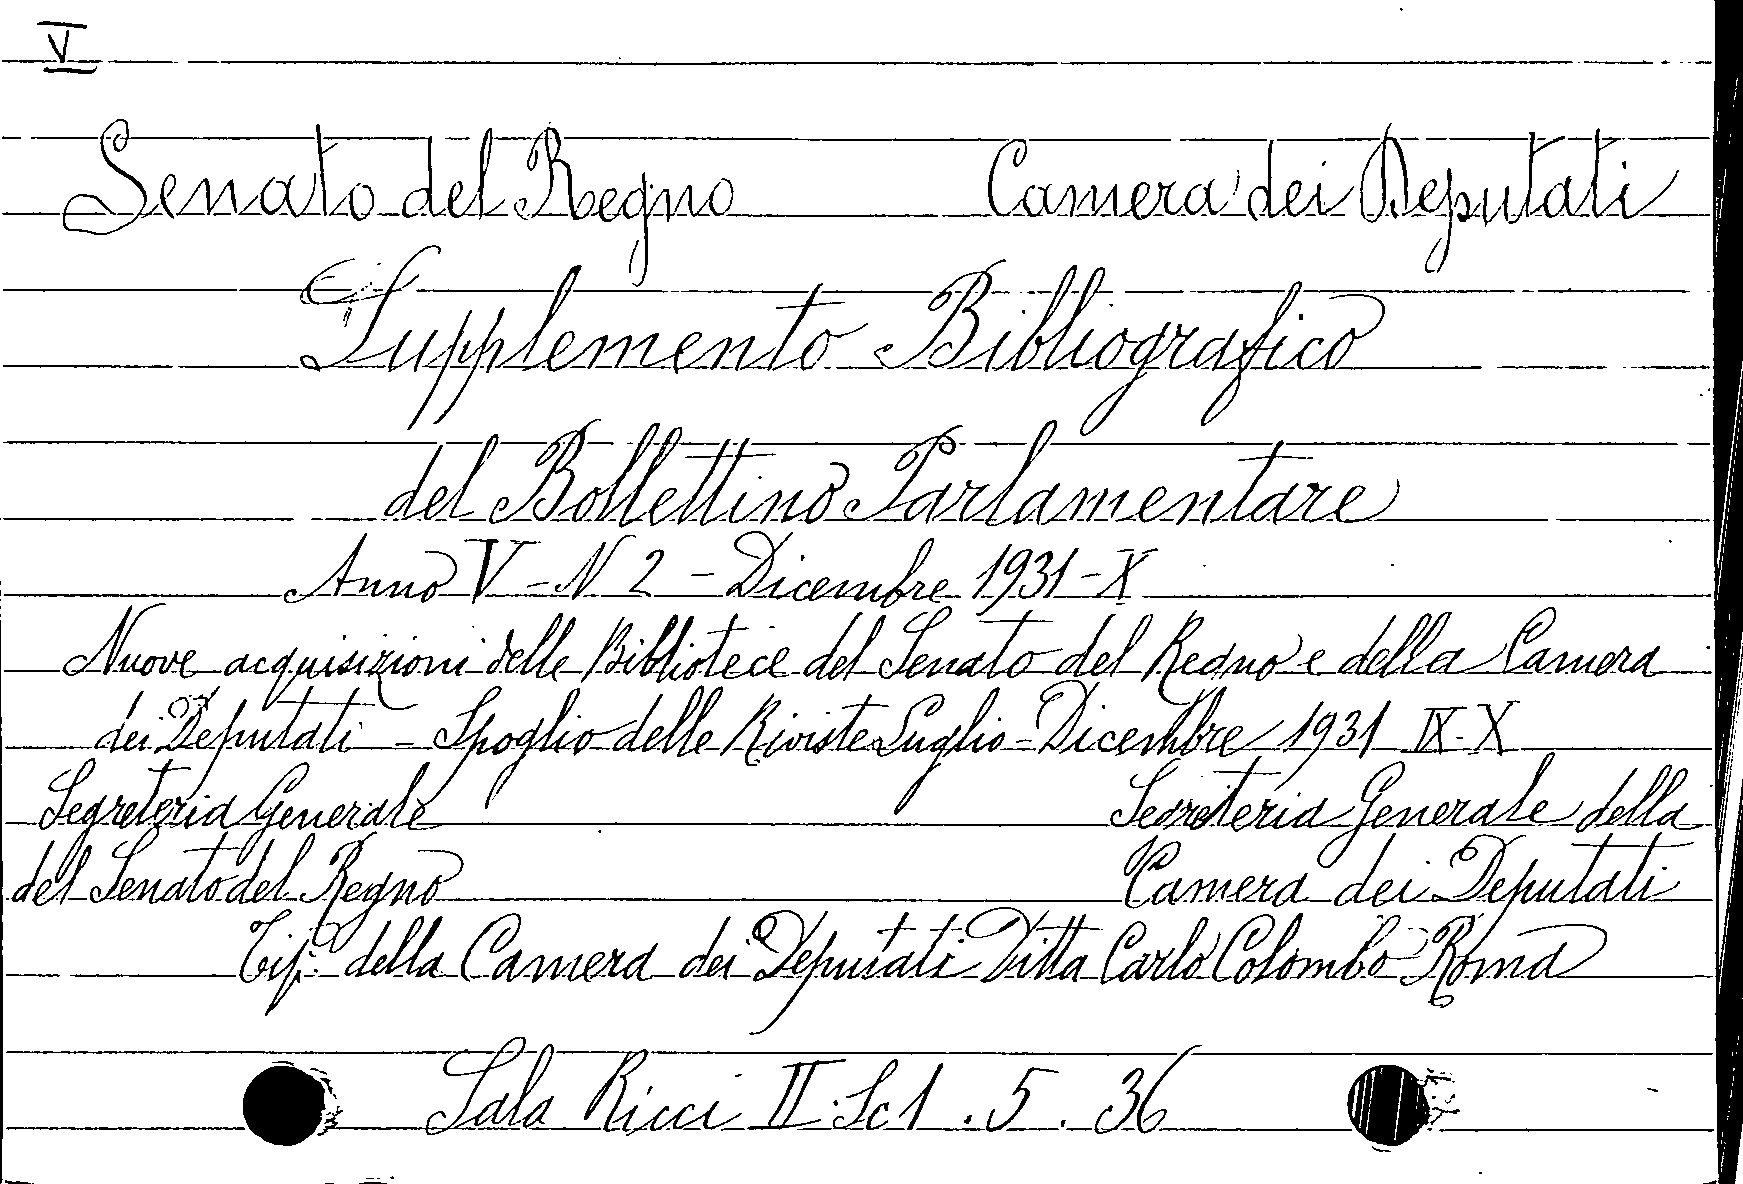 V
Senato del Regno Camera dei Deputati
Supplemento Bibliografico
del Bollettino Parlamentare
Anno V - N 2 - Dicembre 1931 - X
Nuove acquisizioni delle Bibliotece del Senato del Regno e della Camera
dei Deputati - Spoglio delle Riviste Luglio - Dicembre 1931 IX - X
Segreteria Generale Segreteria Generale della
del Senato del Regno Camera dei Deputati
Tip. della Camera dei Deputati Ditta Carlo Colombo Roma
Sala Ricci II. Sc 1 . 5 . 36